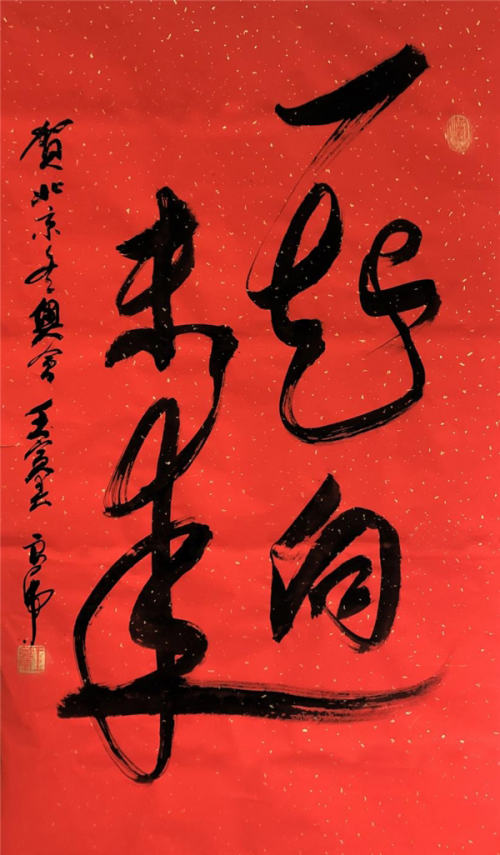 一起向
未来
賀北京冬奥會 壬寅